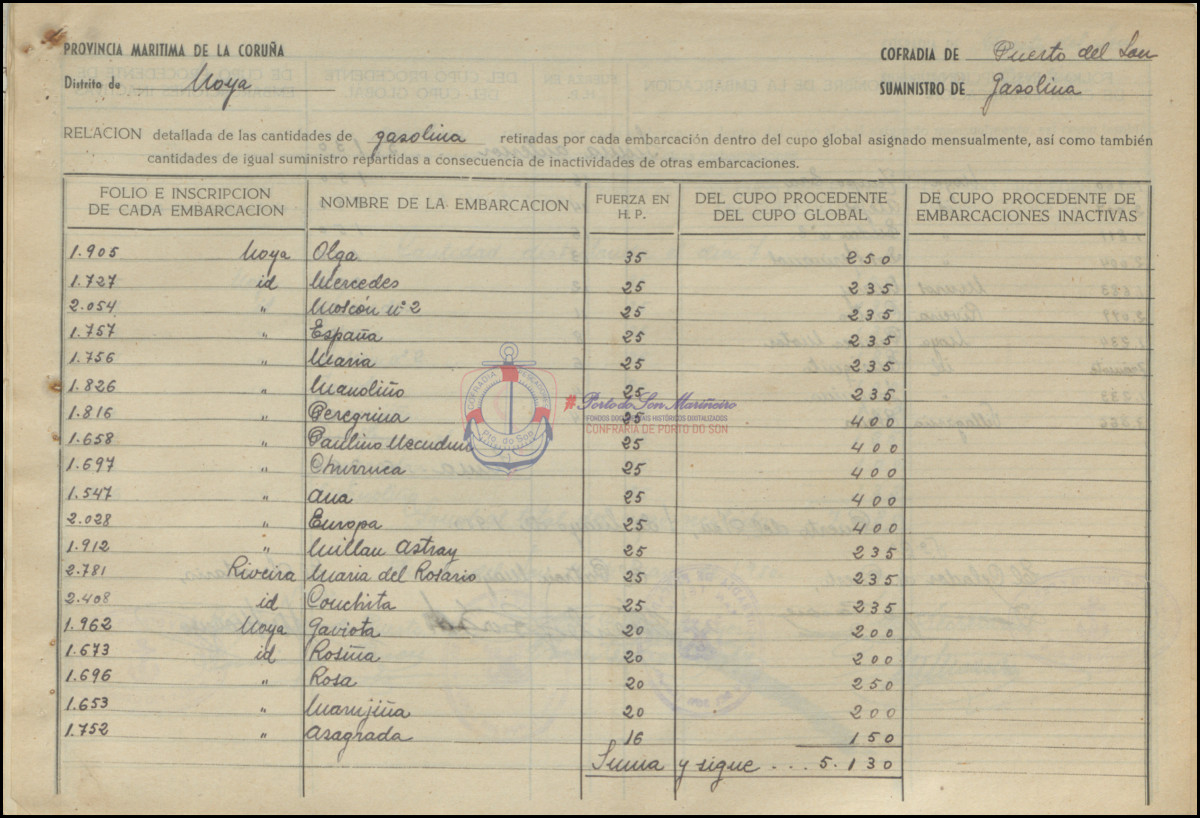 PROVINCIA MARITIMA DE LA CORUÑA
Distrito de Noya
COFRADIA DE Puerto del Son
SUMINISTRO DE Gasolina
RELACION detallada de las cantidades de gasolina retiradas por cada embarcación dentro del cupo global asignado mensualmente, así como también
cantidades de igual suministro repartidas a consecuencia de inactividades de otras embarcaciones.
FOLIO E INSCRIPCION DE CADA EMBARCACION NOMBRE DE LA EMBARCACION FUERZA EN H. P. DEL CUPO PROCEDENTE DEL CUPO GLOBAL DE CUPO PROCEDENTE DE EMBARCACIONES INACTIVAS
1.905 Noya Olga 35 250
1.727 id Mercedes 25 235
2.054 " Moscón nº 2 25 235
1.757 " España 25 235
1.756 " Maria 25 235
1.826 " Manoliño 25 235
1.816 " Peregrina 25 400
1.658 " Paulino 25 400
1.697 " Churruca 25 400
1.547 " Ana 25 400
2.028 " Europa 25 400
1.912 " Millan Astray 25 235
2.781 Riveira Maria del Rosario 25 235
2.408 id Conchita 25 235
1.962 Noya Gaviota 20 200
1.673 id Rosiña 20 200
1.696 " Rosa 20 250
1.653 " Marujiña 20 200
1.752 " Asagrada 16 150
Suma y sigue ... 5.130
COFRADIA PESCADORES
Pto. do Son
#Porto do Son Mariñeiro
FONDOS DOCUMENTAIS HISTÓRICOS DIGITALIZADOS
CONFRARIA DE PORTO DO SON